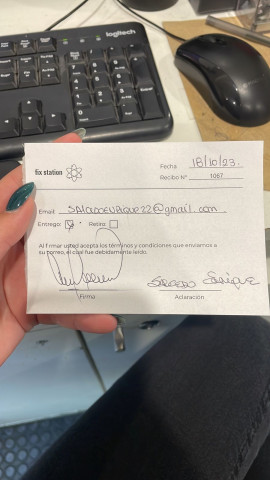 logitech
fix station
Fecha 18/10/23.
Recibo N° 1067
Email: SALCEDOENRIQUE22@gmail.com
Entrego: Retiro:
Al firmar usted acepta los términos y condiciones que enviamos a
su correo, el cual fue debidamente leído.
SALCEDO Enrique
Firma Aclaración